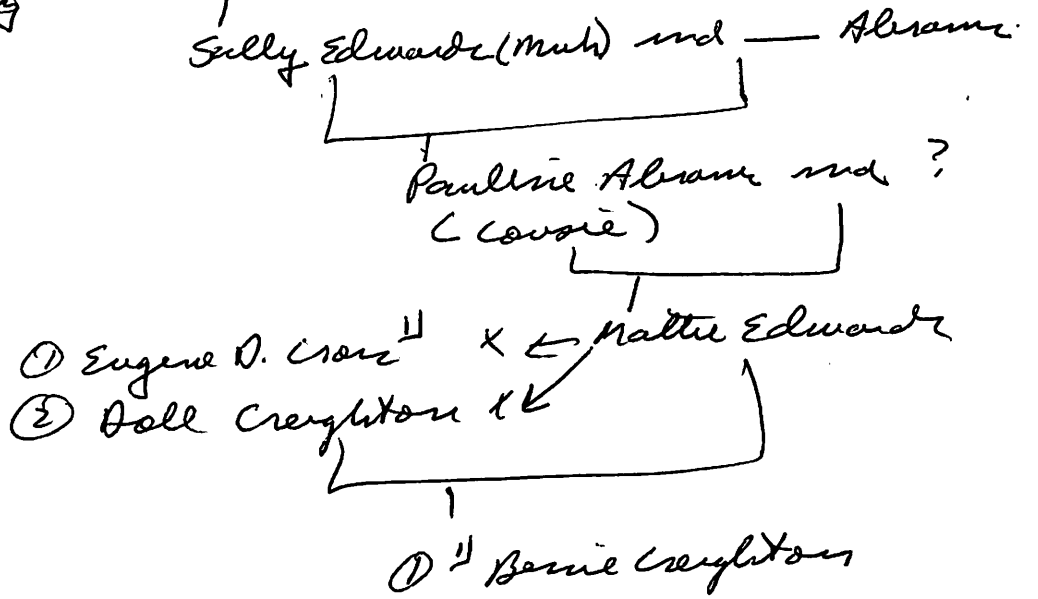 Sally Edwards (Muh) and —— Abrams.
Pauline Abrams and ?
(Cousie)
① Eugene D. Cross " x ← Mattie Edwards
② Doll Creighton x
① " Bernie Creighton